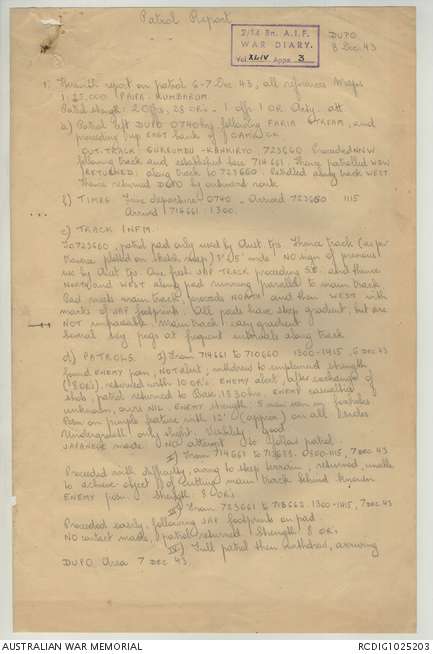 Patrol Report
2/14 Bn. A.I.F.
WAR DIARY.
Vol XLIV Appx. 3
DUPO
8 Dec 43
1. Herewith report on patrol 6-7 Dec 43, all references Maps
1:25,000 PAIPA - KUMBARUM.
Patrol strength: 2 Offs, 25 ORs - 1 off 1 OR Arty. att
a) Patrol left DUPO 0740 hrs following FARIA STREAM, and
proceeding up EAST bank of
CUT. TRACK GURUMBU - KANKIRYO 723660 Proceeded NW
following track and established base 714661. Thence patrolled WSW
RETURNED: along track to 723660. Patrolled along track WEST
thence returned DUPO by outward route
b) TIMES Time departure - 0740 - Arrived 723650 1115
Arrived 714661 - 1300.
c) TRACK INFM.
To 723660, patrol pad only used by Aust tps. Thence track (as per
traverse plotted on sketch map) 3'-5' wide NO sign of previous
use by Aust tps. One fresh JAP TRACK proceeding SE and thence
NORTH and WEST along pad running parallel to main track
Pad meets main track, proceeds NORTH and then WEST with
marks of JAP footprints. All pads have steep gradient, but are
NOT impassable. Main track: easy gradient
Several key pegs at frequent intervals along track
d) PATROLS. I) From 714661 to 710660 1300-1415, 6 DEC 43
found ENEMY posn, NOT alert, withdrew to implement strength
(8 ORs), returned with 10 ORs. ENEMY alert, after exchange of
shots, patrol returned to Base, 1530 hrs. ENEMY casualties
unknown, ours NIL. ENEMY strength 5 men seen in foxholes
Posn on pimple feature with 12' (approx) on all sides
Undergrowth only slight. Visibility good
JAPANESE made NO attempt to follow patrol.
II) From 714661 to 713653. 0800-1115, 7 DEC 43
Proceeded with difficulty, owing to steep terrain, returned, unable
to achieve object of cutting main track behind known
ENEMY posn. Strength 8 ORs
III) From 723661 to 718663 1300-1415, 7 DEC 43
Proceeded easily, following JAP footprints on pad
NO contact made, patrol returned Strength 8 ORs
IV) Full patrol then withdrew, arriving
DUPO Area 7 DEC 43.
AUSTRALIAN WAR MEMORIAL
RCDIG1025203